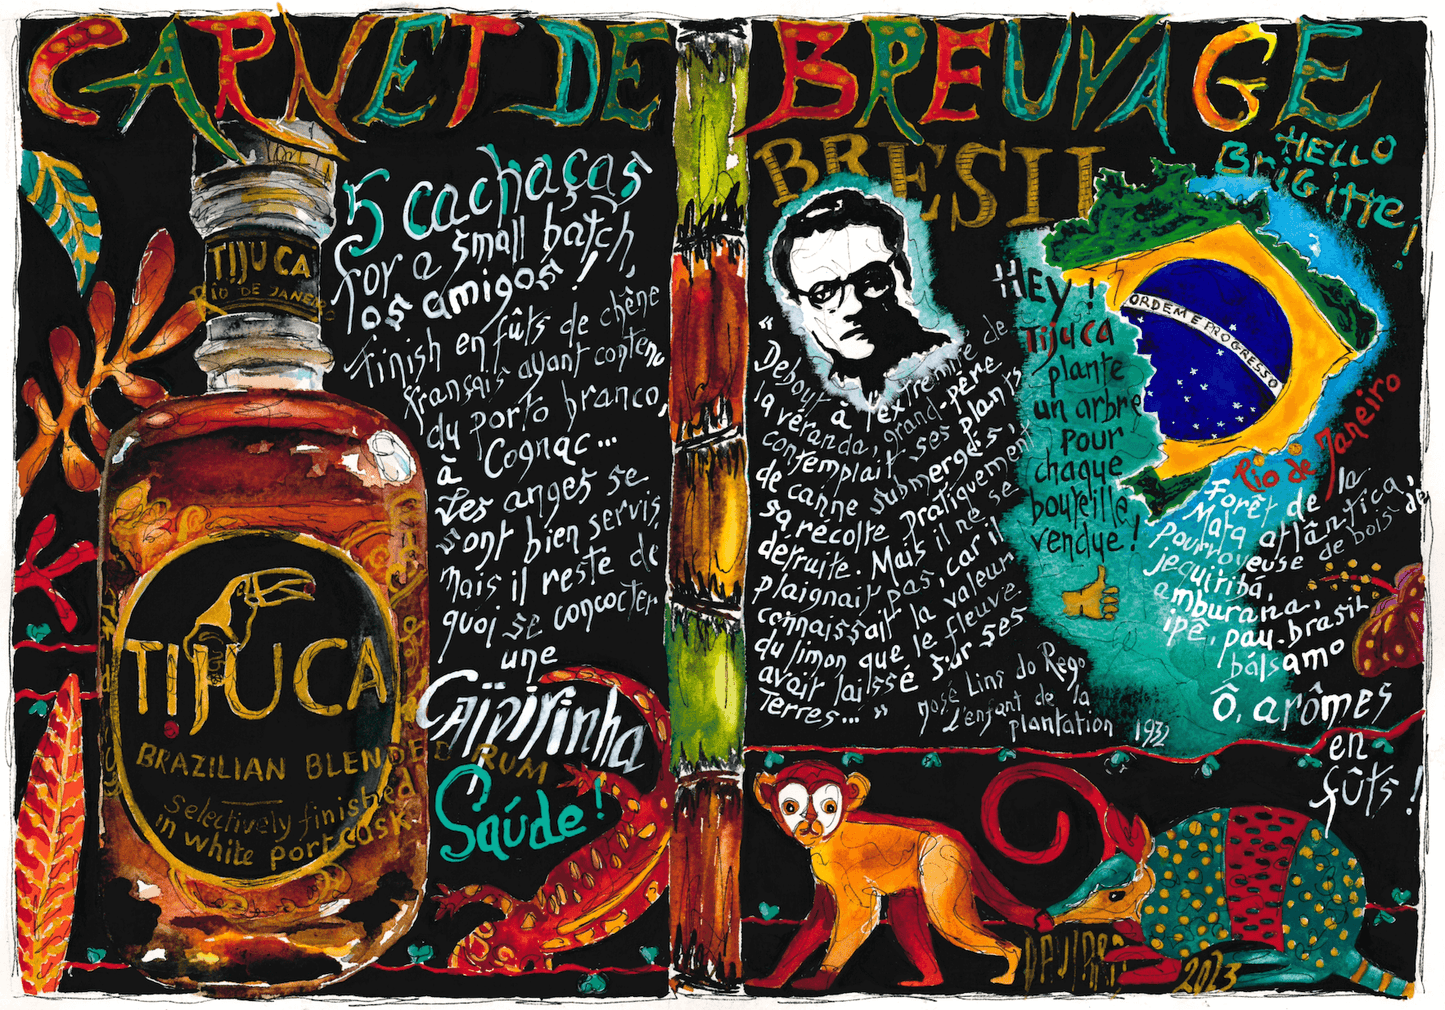 CARNET DE BREUVAGE
BRESIL
HELLO
BriGitte !
5 cachaças
for a small batch,
os amigos !
finish en fûts de chêne
français ayant contenu
du porto branco,
à Cognac...
Les anges se
sont bien servis,
mais il reste de
quoi se concocter
une
Caïpirinha
Saúde !
TIJUCA
RIO DE JANEIRO
TIJUCA
BRAZILIAN BLENDED RUM
Selectively finished
in white port cask
"
Debout à l'extremité de
la véranda, grand-père
contemplait ses plants
de canne submergés,
sa récolte pratiquement
détruite. Mais il ne se
plaignait pas, car il
connaissait la valeur
du limon que le fleuve
avait laissé sur ses
Terres... "
José Lins do Rego
L'enfant de la
plantation 1932
HEY !
Tijuca
plante
un arbre
pour
chaque
bouteille
vendue !
ORDEM E PROGRESSO
Rio de Janeiro
Forêt de la
Mata atlântica,
pourvoyeuse de bois de
jequitibá,
amburana,
ipê, pau-brasil
bálsamo
Ô, arômes
en
fûts !
2023